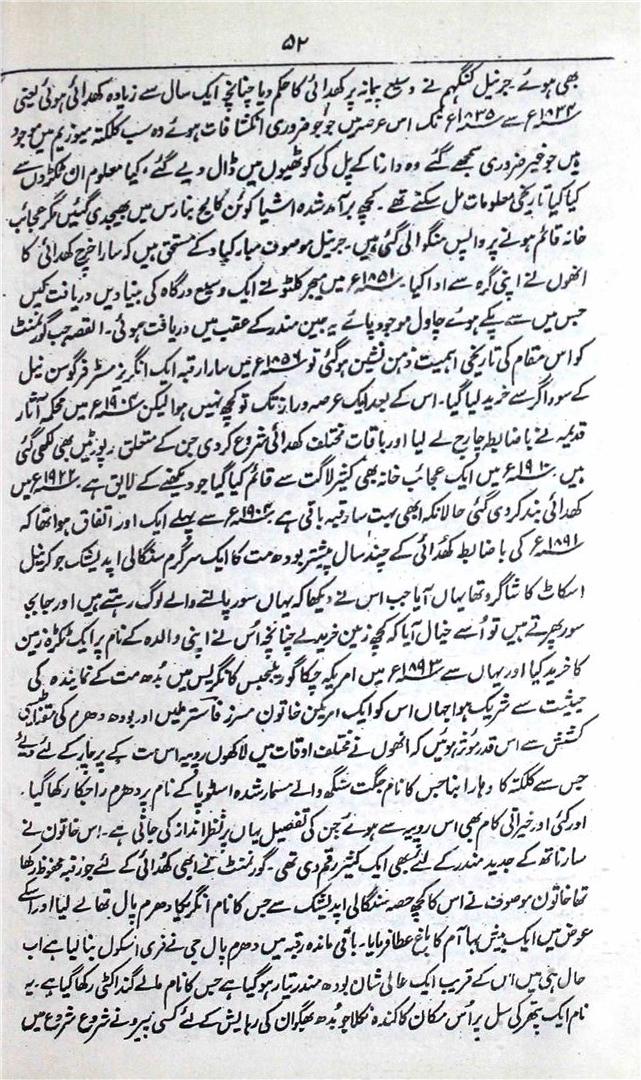 ۵۲
بھی ہوئے۔ جرنیل کننگہم نے وسیع پیمانہ پر کھدائی کا حکم دیا چنانچہ ایک سال سے زیادہ کھدائی ہوئی یعنی
۱۸۳۴ء سے ۱۸۳۵ء تک اس عرصہ میں جو جو ضروری انکشافات ہوئے وہ سب کلکتہ میوزیم میں موجود
ہیں جو غیر ضروری سمجھے گئے وہ دارنا کے پل کی کوٹھیوں میں ڈال دیے گئے، کیا معلوم ان ٹکڑوں سے
کیا کیا تاریخی معلومات مل سکتے تھے۔ کچھ برآمد شدہ اشیا کوئن کالج بنارس میں بھیجدی گئیں مگر عجائب
خانہ قائم ہونے پر واپس منگوالی گئی ہیں۔ جرنیل موصوف مبارکباد کے مستحق ہیں کہ سارا خرچ کھدائی کا
انھوں نے اپنی گرہ سے ادا کیا۔ ۱۸۵۱ء میں میجر کلٹو نے ایک وسیع درگاہ کی بنیادیں دریافت کیں
جس میں سے پکے ہوئے چاول موجود پائے یہ جین مندر کے عقب میں دریافت ہوئی۔ القصہ جب گورنمنٹ
کو اس مقام کی تاریخی اہمیت ذہن نشین ہوگئی تو ۱۸۵۶ء میں سارا رقبہ ایک انگریز مسٹر فرگوسن نیل
کے سوداگر سے خرید لیا گیا۔ اس کے بعد ایک عرصہ دراز تک تو کچھ نہیں ہوا لیکن ۱۹۰۴ء میں محکمہ آثار
قدیمہ نے باضابطہ چارج لے لیا اور باقات مختلف کھدائی شروع کردی جن کے متعلق رپورٹیں بھی لکھی گئی
ہیں ۱۹۱۰ء میں ایک عجائب خانہ بھی کثیر لاگت سے قائم کیا گیا جو دیکھنے کے لایق ہے۔ ۱۹۲۲ء میں
کھدائی بند کردی گئی حالانکہ ابھی بہت سا رقبہ باقی ہے۔ ۱۹۰۴ء سے پہلے ایک اور اتفاق ہوا تھا کہ
۱۸۹۱ء کی باضابطہ کھدائی کے چند سال پیشتر بودھ مت کا ایک سرگرم سنگالی اپدیشک جو کرنیل
اسکاٹ کا شاگرد تھا یہاں آیا جب اس نے دیکھا کہ یہاں سور پالنے والے لوگ رہتے ہیں اور جابجا
سور پھرتے ہیں تو اُسے خیال آیا کہ کچھ زمین خریدلے چنانچہ اُس نے اپنی والدہ کے نام پر ایک ٹکڑہ زمین
کا خرید کیا اور یہاں سے ۱۸۹۳ء میں امریکہ چکاگو ریلیجس کانگریس میں بُدھ مت کے نمایندہ کی
حیثیت سے شریک ہوا جہاں اس کو ایک امریکن خاتون مسرز فاسٹر ملیں اور بودھ دھرم کی مقناطیسی
کشش سے اس قدر موثر ہوئیں کہ انھوں نے مختلف اوقات میں لاکھوں روپیہ اس مت کے پرچار کے لئے دیئے
جس سے کلکتہ کا وہارا بنا جس کا نام جگت سنگھ والے مسمار شدہ اسٹوپا کے نام پر دھرم راجکا رکھا گیا۔
اور کئی اور خیراتی کام بھی اس روپیہ سے ہوئے جن کی تفصیل یہاں پر نظر انداز کی جاتی ہے۔ اس خاتون نے
سارناتھ کے جدید مندر کے لئے بھی ایک کثیر رقم دی تھی۔ گورنمنٹ نے ابھی کھدائی کے لئے جو رقبہ محفوظ رکھا
تھا خاتون موصوف نے اس کا کچھ حصہ سنگالی اپدیشک سے جس کا نام انگریکا دھرم پال تھا لے لیا اور اسکے
عوض میں ایک بیش بہا آم کا باغ عطا فرمایا۔ باقی ماندہ رقبہ میں دھرم پال جی نے فری اسکول بنالیا ہے اب
حال ہی میں اس کے قریب ایک عالی شان بودھ مندر تیار ہوگیا ہے جس کا نام مالے گندا کٹی رکھا گیا ہے۔ یہ
نام ایک پتھر کی سل پر اُس مکان کا کندہ نکلا جو بُدھ بھگوان کی رہایش کے لئے کسی پیرو نے شروع شروع میں